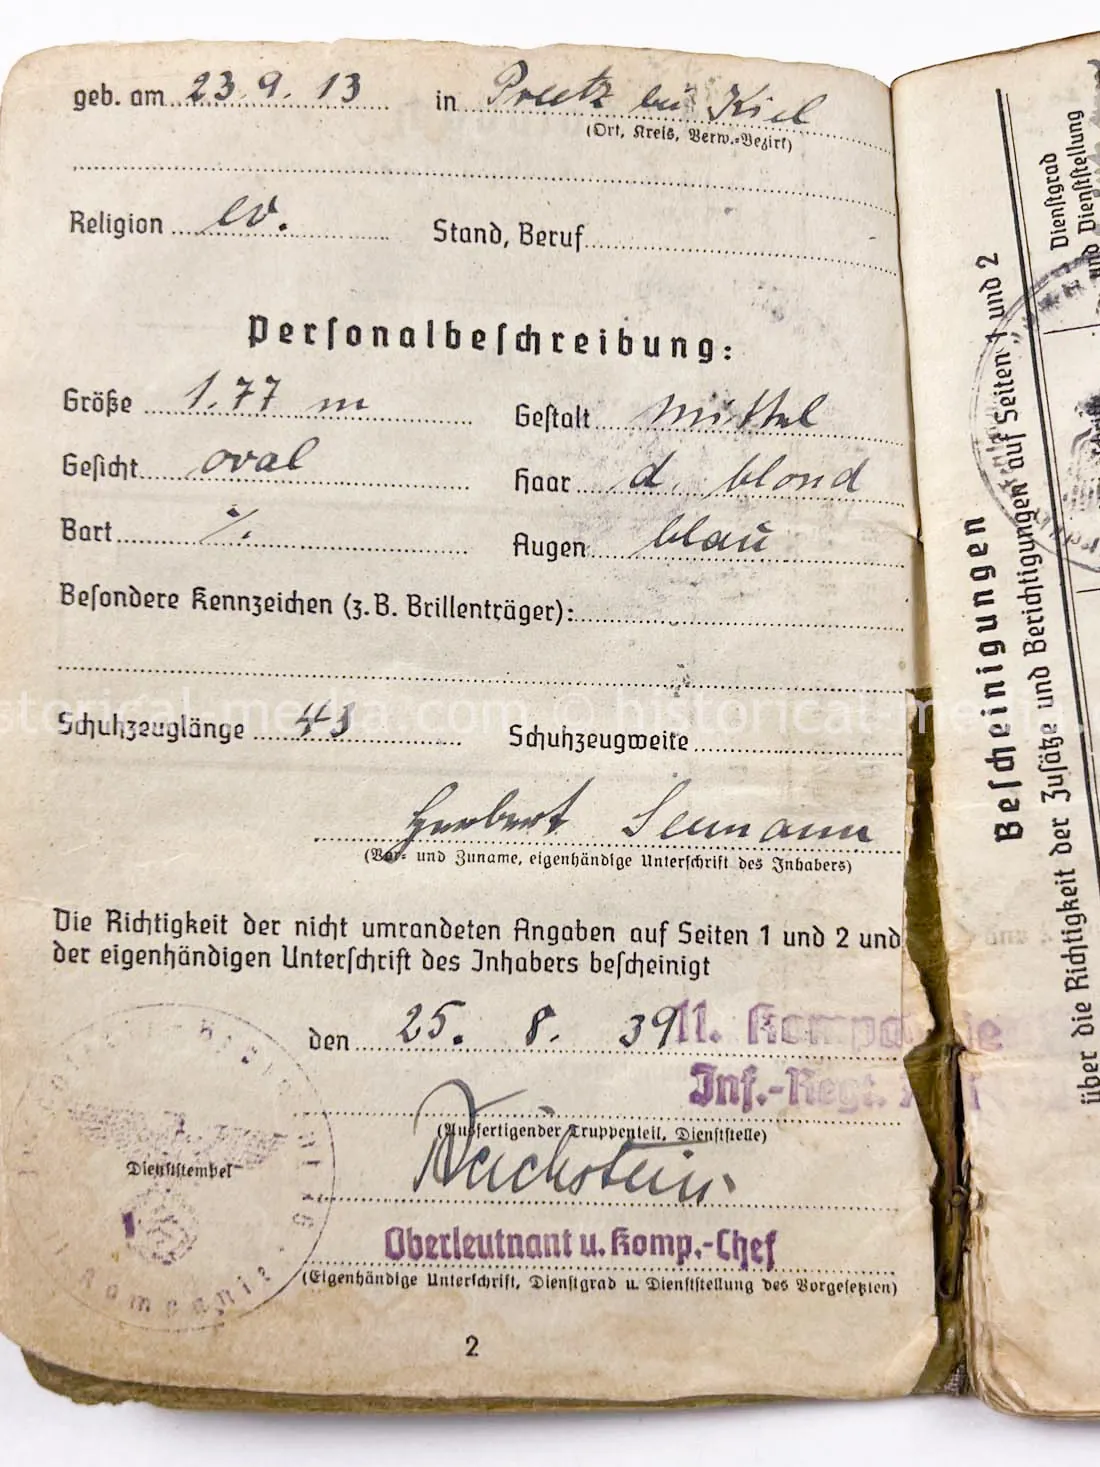 geb. am 23. 9. 13 in Preetz bei Kiel
(Ort, Kreis, Verw.-Bezirk)
Religion ev. Stand, Beruf
Personalbeschreibung:
Größe 1.77 m Gestalt mittel
Gesicht oval Haar d. blond
Bart ./. Augen blau
Besondere Kennzeichen (z. B. Brillenträger):
historical-media.com © historical-media
Schuhzeuglänge 43 Schuhzeugweite
Herbert Seemann
(Vor- und Zuname, eigenhändige Unterschrift des Inhabers)
Die Richtigkeit der nicht umrandeten Angaben auf Seiten 1 und 2 und
der eigenhändigen Unterschrift des Inhabers bescheinigt
den 25. 8. 39
11. Kompanie
Inf.-Regt.
(Ausfertigender Truppenteil, Dienststelle)
Dienststempel
Kompanie
Reichstein
Oberleutnant u. Komp.-Chef
(Eigenhändige Unterschrift, Dienstgrad u. Dienststellung des Vorgesetzten)
2
Bescheinigungen
über die Richtigkeit der Zusätze und Berichtigungen auf Seiten 1 und 2
Dienstgrad
und Dienststellung